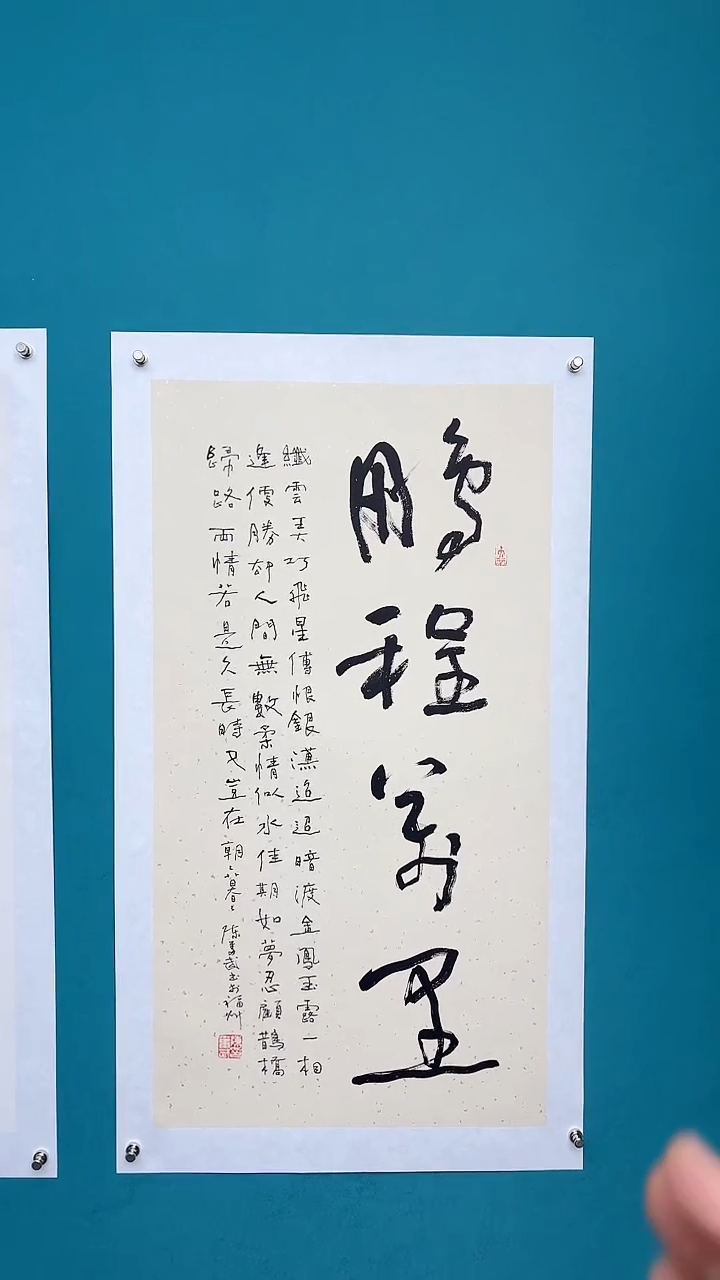 鵬程萬里
纖雲弄巧飛星傳恨銀漢迢迢暗渡金鳳玉露一相
逢便勝却人間無數柔情似水佳期如夢忍顧鵲橋
歸路兩情若是久長時又豈在朝〻暮〻 陈武书於福州